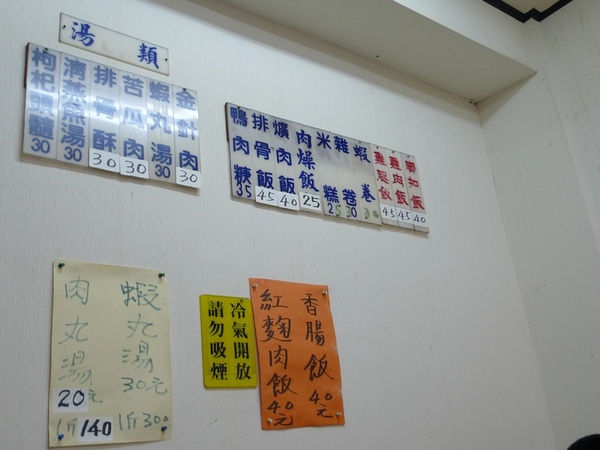 湯類
金針肉 30
蝦丸湯 30
苦瓜肉 30
排骨酥 30
清燕魚湯 30
枸杞頭髓 30
雞肉飯 45
蝦卷
雜卷 30
米糕 25
肉燥飯 25
爌肉飯 40
排骨飯 45
鴨肉糠 35
蝦丸湯 30元
1斤300
肉丸湯 20元
1斤140
冷氣開放
請勿吸煙
香腸飯 40元
紅麴肉飯 40元